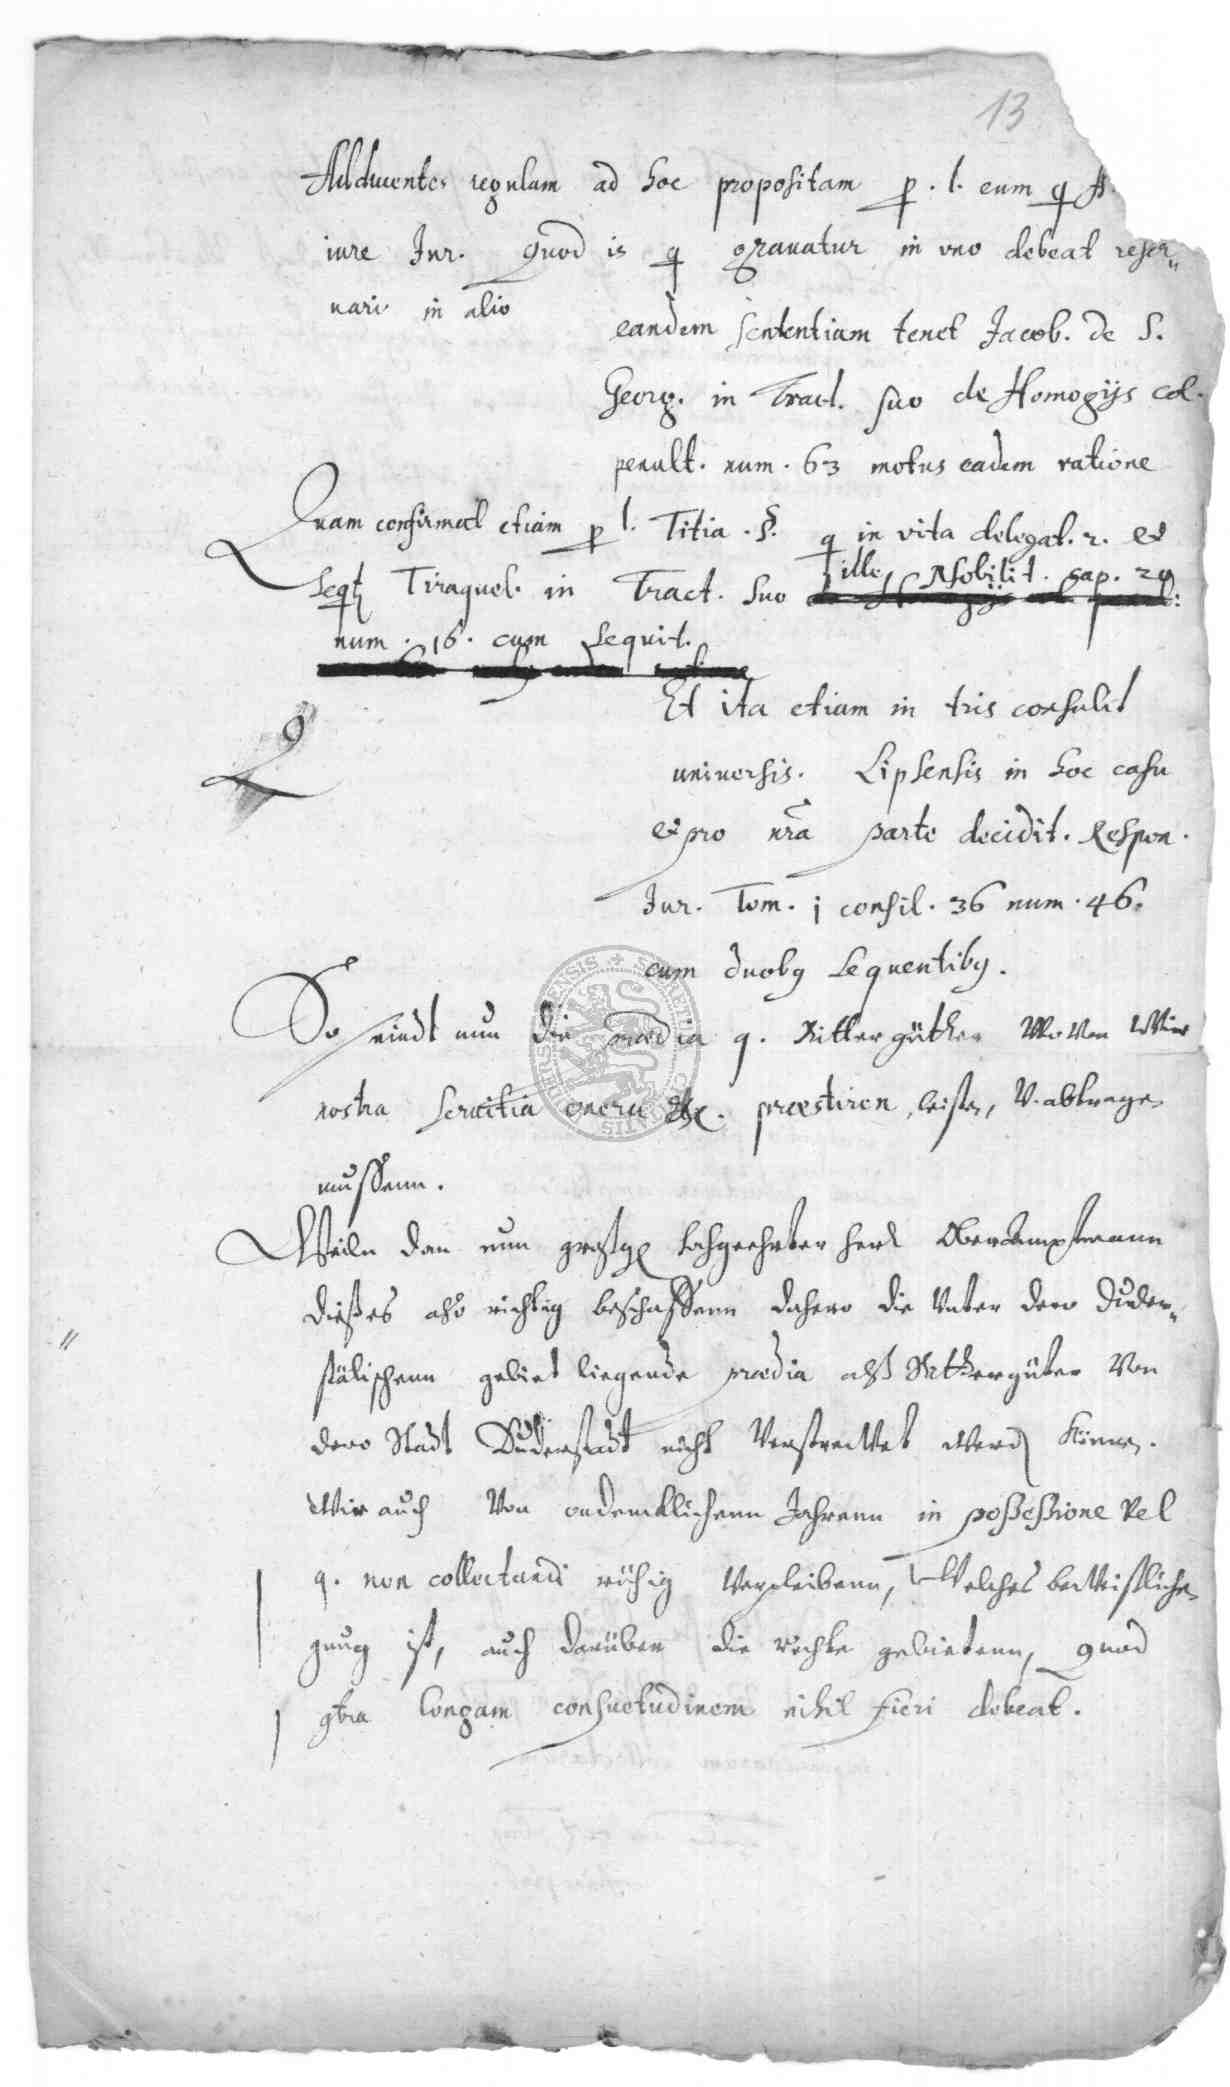 13
Adducentes regulam ad hoc propositam p. l. eum q
iure Jur. Quod is q grauatur in vno debeat reser„
uari in alio
eandem sententiam tenet Jacob. de S.
Georg. in Tract. suo de Homogijs col.
penult. num. 63 motus eadem ratione
Quam confirmat etiam p l. Titia. §. q in vita delegat. 2. et
seqt Tiraquel. in Tract. suo
ille, Nobilit. cap. 20
num. 16. cum sequit.
Et ita etiam in tris consulit
uniuersis. Lipsensis in hoc casu
et pro nra parte decidit. Respon.
Jur. Tom. j consil. 36 num. 46.
cum duobq sequentibq.
So seindt nun die prædia q. Rittergüther Wo Von Wir
nostra seruitia onera etc. præstiren, leisten, V. abtragen
mussenn.
Weiln dan nun hochgeehrter Herr OberAmptmann
dießes also richtig beschaffenn dahero die Vnter dero Duder„
stätischenn gebiet liegende prædia alß Rittergüter Von
dero Stadt Duderstadt nicht werd können.
Wir auch Von ondencklichenn Jahrenn in poßeßione Vel
q. non collectandi rühig Verpleibenn, Welches beweißlichen
gnug ist, auch darüber die rechte gebietenn, quod
gtra longam consuetudinem nihil fieri debeat.